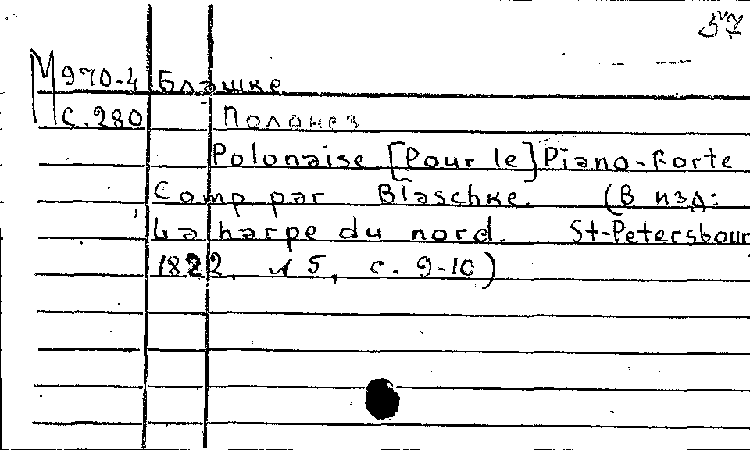 57
М 970-4 Блашке
с. 280 Полонез
Polonaise [Pour le] Piano-forte
Comp par Blaschke. (В изд:
La harpe du nord. St-Petersbour
1822. № 5, с. 9-10)